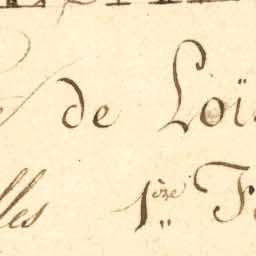 de Loï
lles 1ère F